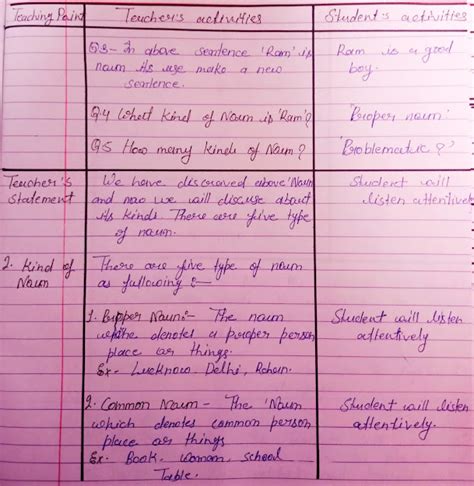 Teaching Point Teacher's activities Student's activities
Q3- In above sentence 'Ram' is Ram is a good
noun its use make a new boy.
sentence.
Q.4 What kind of Noun is 'Ram'? 'Proper noun'
Q.5 How many kinds of Noun? 'Problematic?'
Teacher's We have discussed above 'Noun Student will
Statement and now we will discuse about listen attentively
its kinds. There are five type
of noun.
2. Kind of There are five type of noun
Noun as following :—
1. Propper Noun:- The noun Student will listen
which denotes a proper person attentively
place or things.
Ex- Lucknow, Delhi, Rohan.
2. Common Noun - The 'Noun Student will listen
which denotes common person attentively.
place or things
Ex. Book, woman, school
Table.